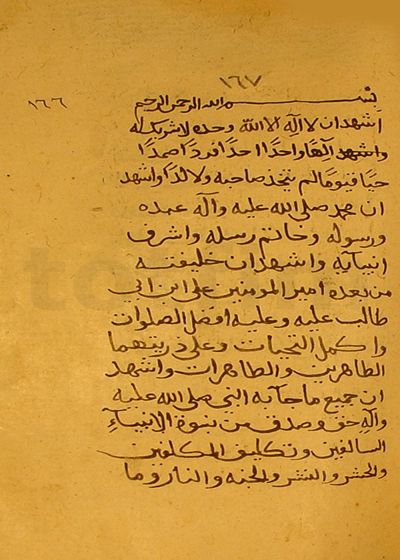 ١٦٧
١٦٦
بسم الله الرحمن الرحيم
اشهد ان لا اله الا الله وحده لا شريك له
واشهد الها واحدا احدا فردا صمدا
حيا قيوما لم يتخذ صاحبه ولا ولدا واشهد
ان محمد صلى الله عليه وآله عبده
ورسوله وخاتم رسله واشرف
انبيايه واشهد ان خليفته
من بعده امير المومنين على ابن ابى
طالب عليه وعليه افضل الصلوات
واكمل التحيات وعلى ذريتهما
الطاهرين والطاهرات واشهد
ان جميع ما جآ به النبى صلى الله عليه
وآله حق وصدق من نبوة الانبيآء
السالفين وتكليف المكلفين
والحشر والنشر والجنه والنار وما